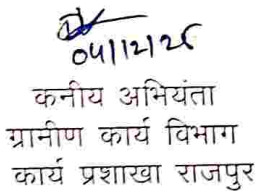 04/12/25
कनीय अभियंता
ग्रामीण कार्य विभाग
कार्य प्रशाखा राजपुर